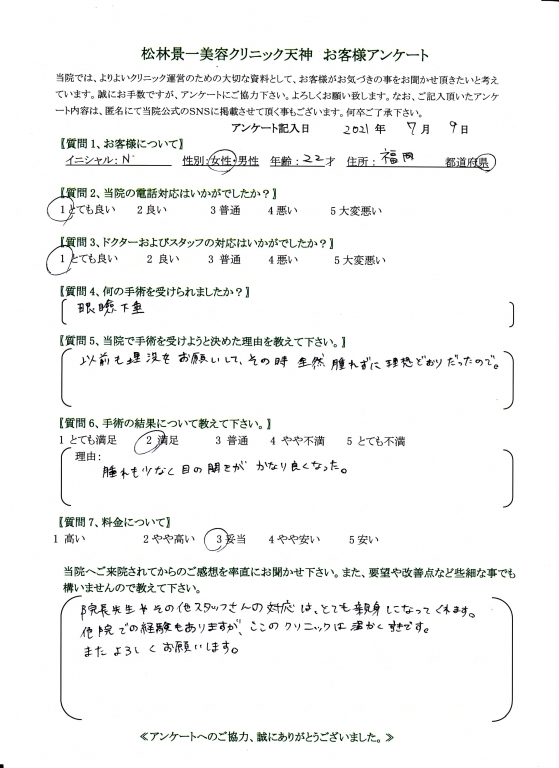 松林景一美容クリニック天神 お客様アンケート
当院では、よりよいクリニック運営のための大切な資料として、お客様がお気づきの事をお聞かせ頂きたいと考え
ています。誠にお手数ですが、アンケートにご協力下さい。よろしくお願い致します。なお、ご記入頂いたアンケ
ート内容は、匿名にて当院公式のSNSに掲載させて頂く事もございます。何卒ご了承下さい。
アンケート記入日 2021年 7月 9日
【質問1、お客様について】
イニシャル:N 性別:女性・男性 年齢:22才 住所: 福岡 都道府県
【質問2、当院の電話対応はいかがでしたか?】
1とても良い 2良い 3普通 4悪い 5大変悪い
【質問3、ドクターおよびスタッフの対応はいかがでしたか?】
1とても良い 2 良い 3 普通 4悪い 5大変悪い
【質問4、何の手術を受けられましたか?】
眼瞼下垂
【質問5、当院で手術を受けようと決めた理由を教えて下さい。】
以前も埋没をお願いして、その時 全然 腫れずに理想どおりだったので。
【質問6、手術の結果について教えて下さい。】
1 とても満足 2 満足 3 普通 4 やや不満 5 とても不満
理由:
腫れも少なく目の開きが かなり良くなった。
【質問7、料金について】
1 高い 2やや高い 3妥当 4やや安い 5安い
当院へご来院されてからのご感想を率直にお聞かせ下さい。また、要望や改善点など些細な事でも
構いませんので教えて下さい。
院長先生やその他スタッフさんの対応は、とても親身になってくれます。
他院での経験もありますが、ここのクリニックは温かくすきです。
またよろしくお願いします。
≪アンケートへのご協力、誠にありがとうございました。≫